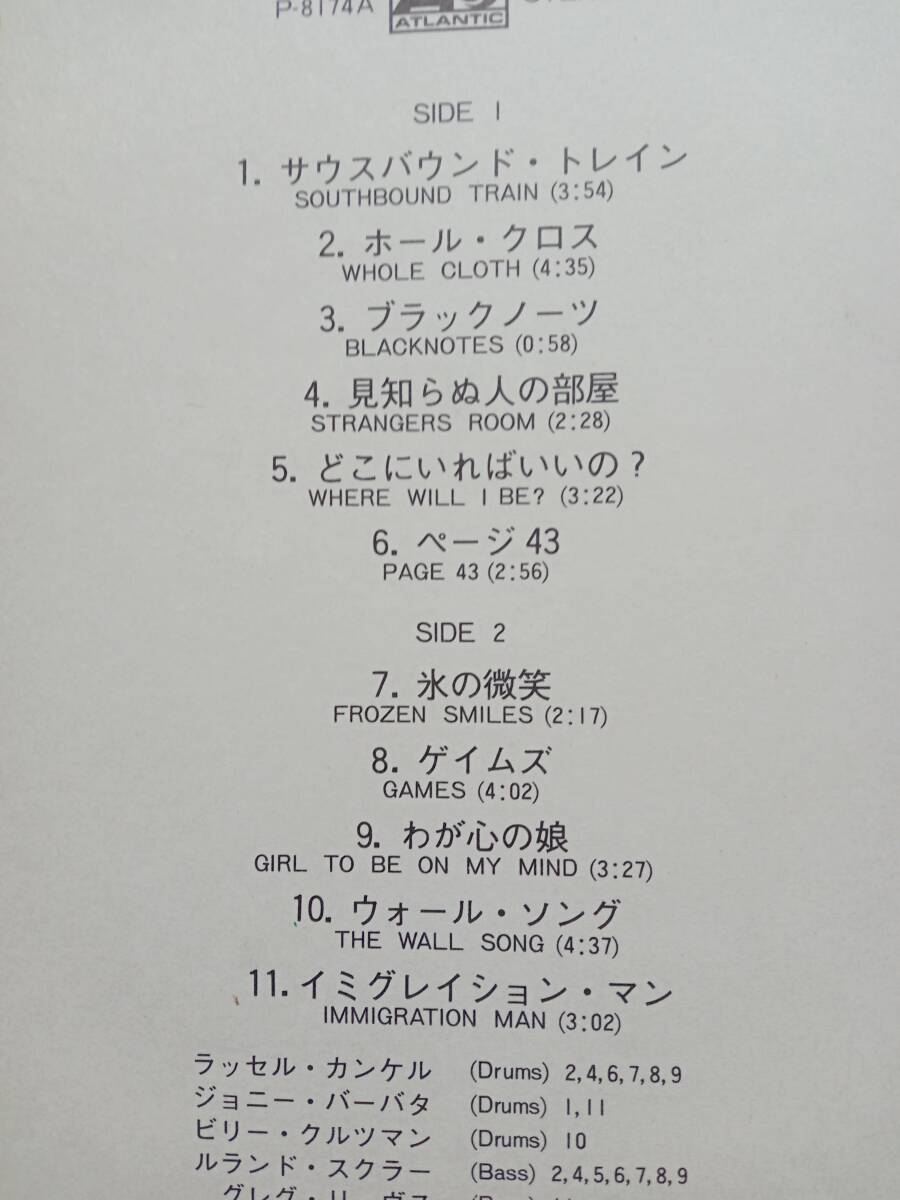 P-8174A ATLANTIC
SIDE 1
1. サウスバウンド・トレイン
SOUTHBOUND TRAIN (3:54)
2. ホール・クロス
WHOLE CLOTH (4:35)
3. ブラックノーツ
BLACKNOTES (0:58)
4. 見知らぬ人の部屋
STRANGERS ROOM (2:28)
5. どこにいればいいの？
WHERE WILL I BE? (3:22)
6. ページ 43
PAGE 43 (2:56)
SIDE 2
7. 氷の微笑
FROZEN SMILES (2:17)
8. ゲイムズ
GAMES (4:02)
9. わが心の娘
GIRL TO BE ON MY MIND (3:27)
10. ウォール・ソング
THE WALL SONG (4:37)
11. イミグレイション・マン
IMMIGRATION MAN (3:02)
ラッセル・カンケル (Drums) 2,4,6,7,8,9
ジョニー・バーバタ (Drums) 1,11
ビリー・クルツマン (Drums) 10
ルランド・スクラー (Bass) 2,4,5,6,7,8,9
グレグ・リーヴス